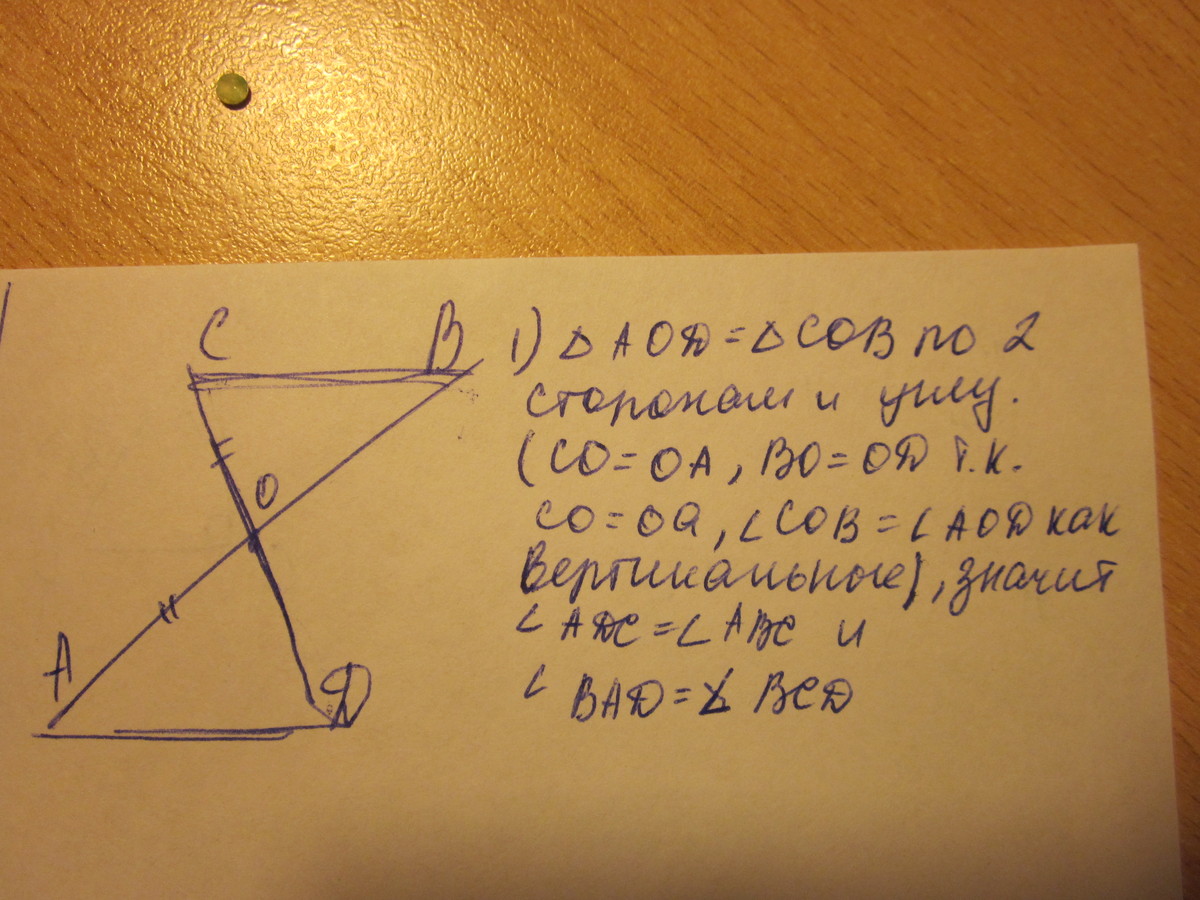 C
B
O
A
D
1) △ AOD = △ COB по 2
сторонам и углу.
(CO = OA, BO = OD т.к.
CO = OA, ∠COB = ∠AOD как
вертикальные), значит
∠ ADC = ∠ ABC и
∠ BAD = ∠ BCD